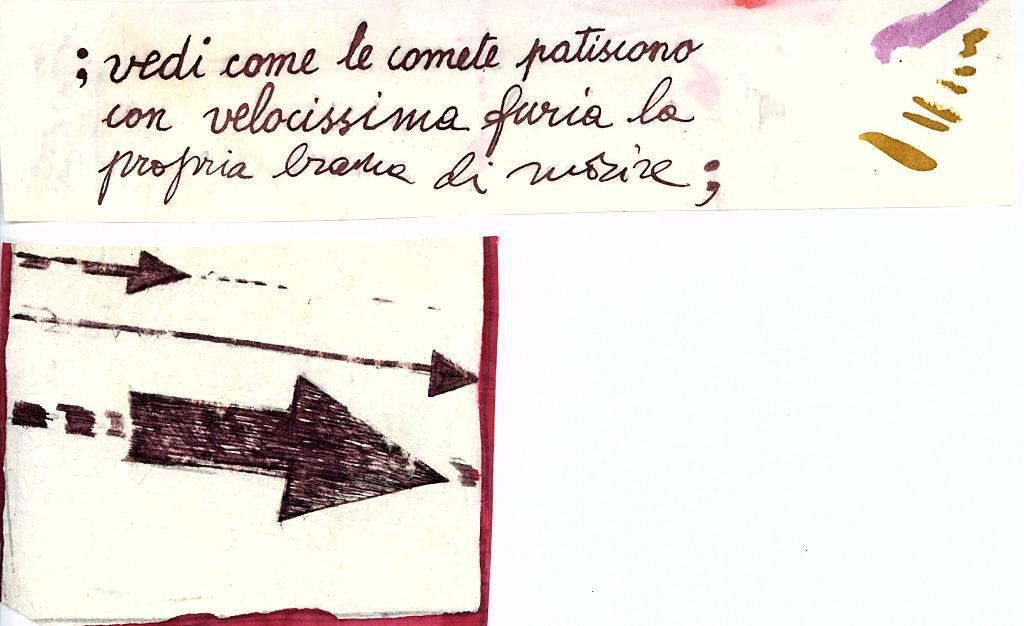 ; vedi come le comete patiscono
con velocissima furia la
propria brama di morire ;